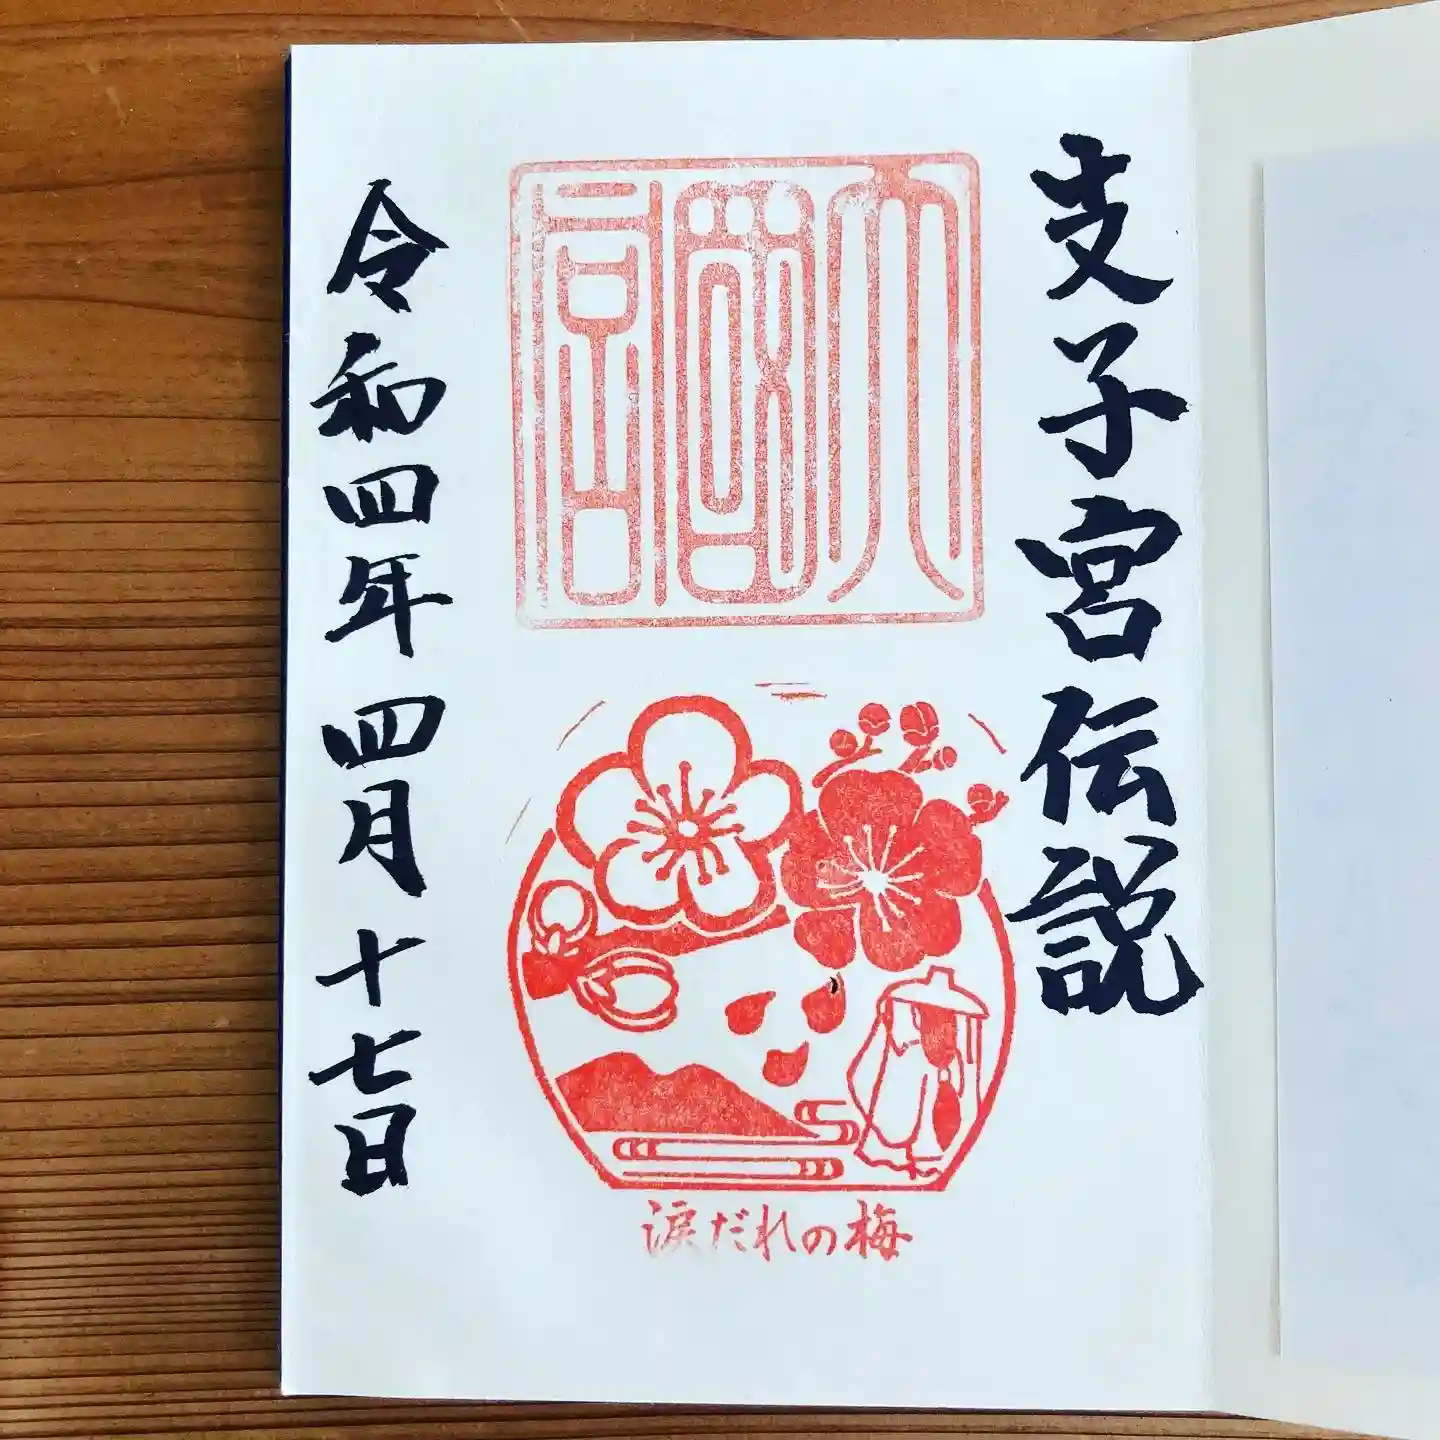 支子宮伝説
令和四年四月十七日
涙だれの梅